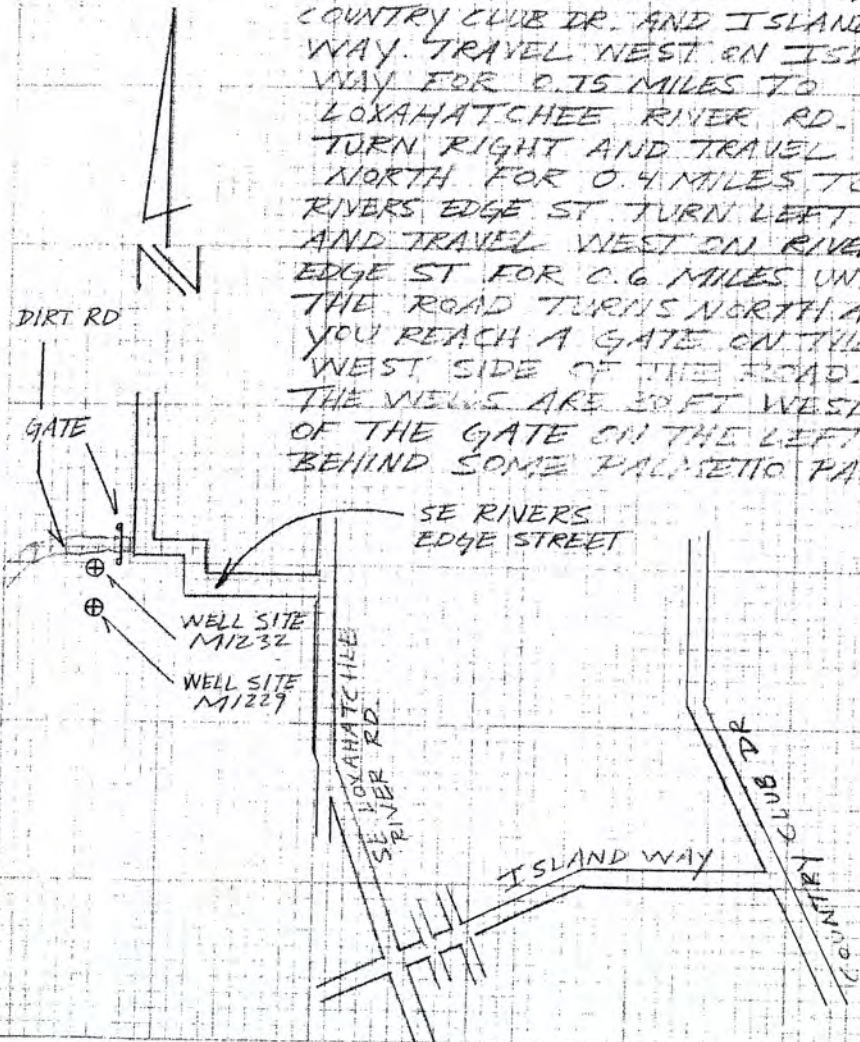 COUNTRY CLUB DR. AND ISLAND
WAY. TRAVEL WEST ON
WAY FOR 0.75 MILES TO
LOXAHATCHEE RIVER RD.
TURN RIGHT AND TRAVEL
NORTH FOR 0.4 MILES TO
RIVERS EDGE ST TURN LEFT
AND TRAVEL WEST ON
EDGE ST FOR 0.6 MILES
THE ROAD TURNS NORTH
YOU REACH A GATE ON
WEST SIDE OF THE ROAD.
THE WELLS ARE FT WEST
OF THE GATE ON THE LEFT
BEHIND SOME PALMETTO
N
DIRT RD
GATE
SE RIVERS
EDGE STREET
WELL SITE
M1232
WELL SITE
M1229
SE LOXAHATCHEE
RIVER RD
ISLAND WAY
COUNTRY CLUB DR